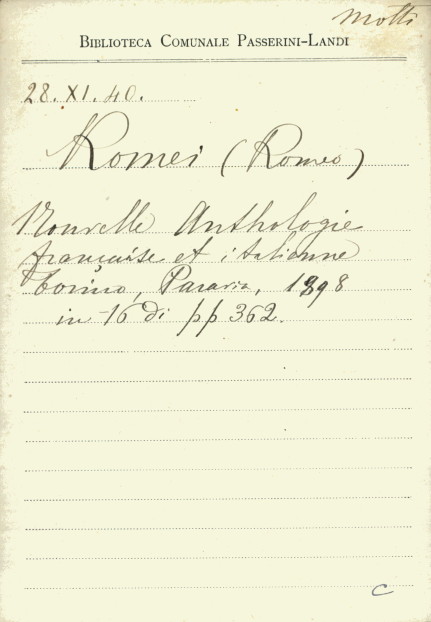 Molti
BIBLIOTECA COMUNALE PASSERINI-LANDI
28. XI. 40.
Romei (Romeo)
Nouvelle Anthologie
française et italienne
Torino, Paravia, 1898
in-16 di pp 362.
C